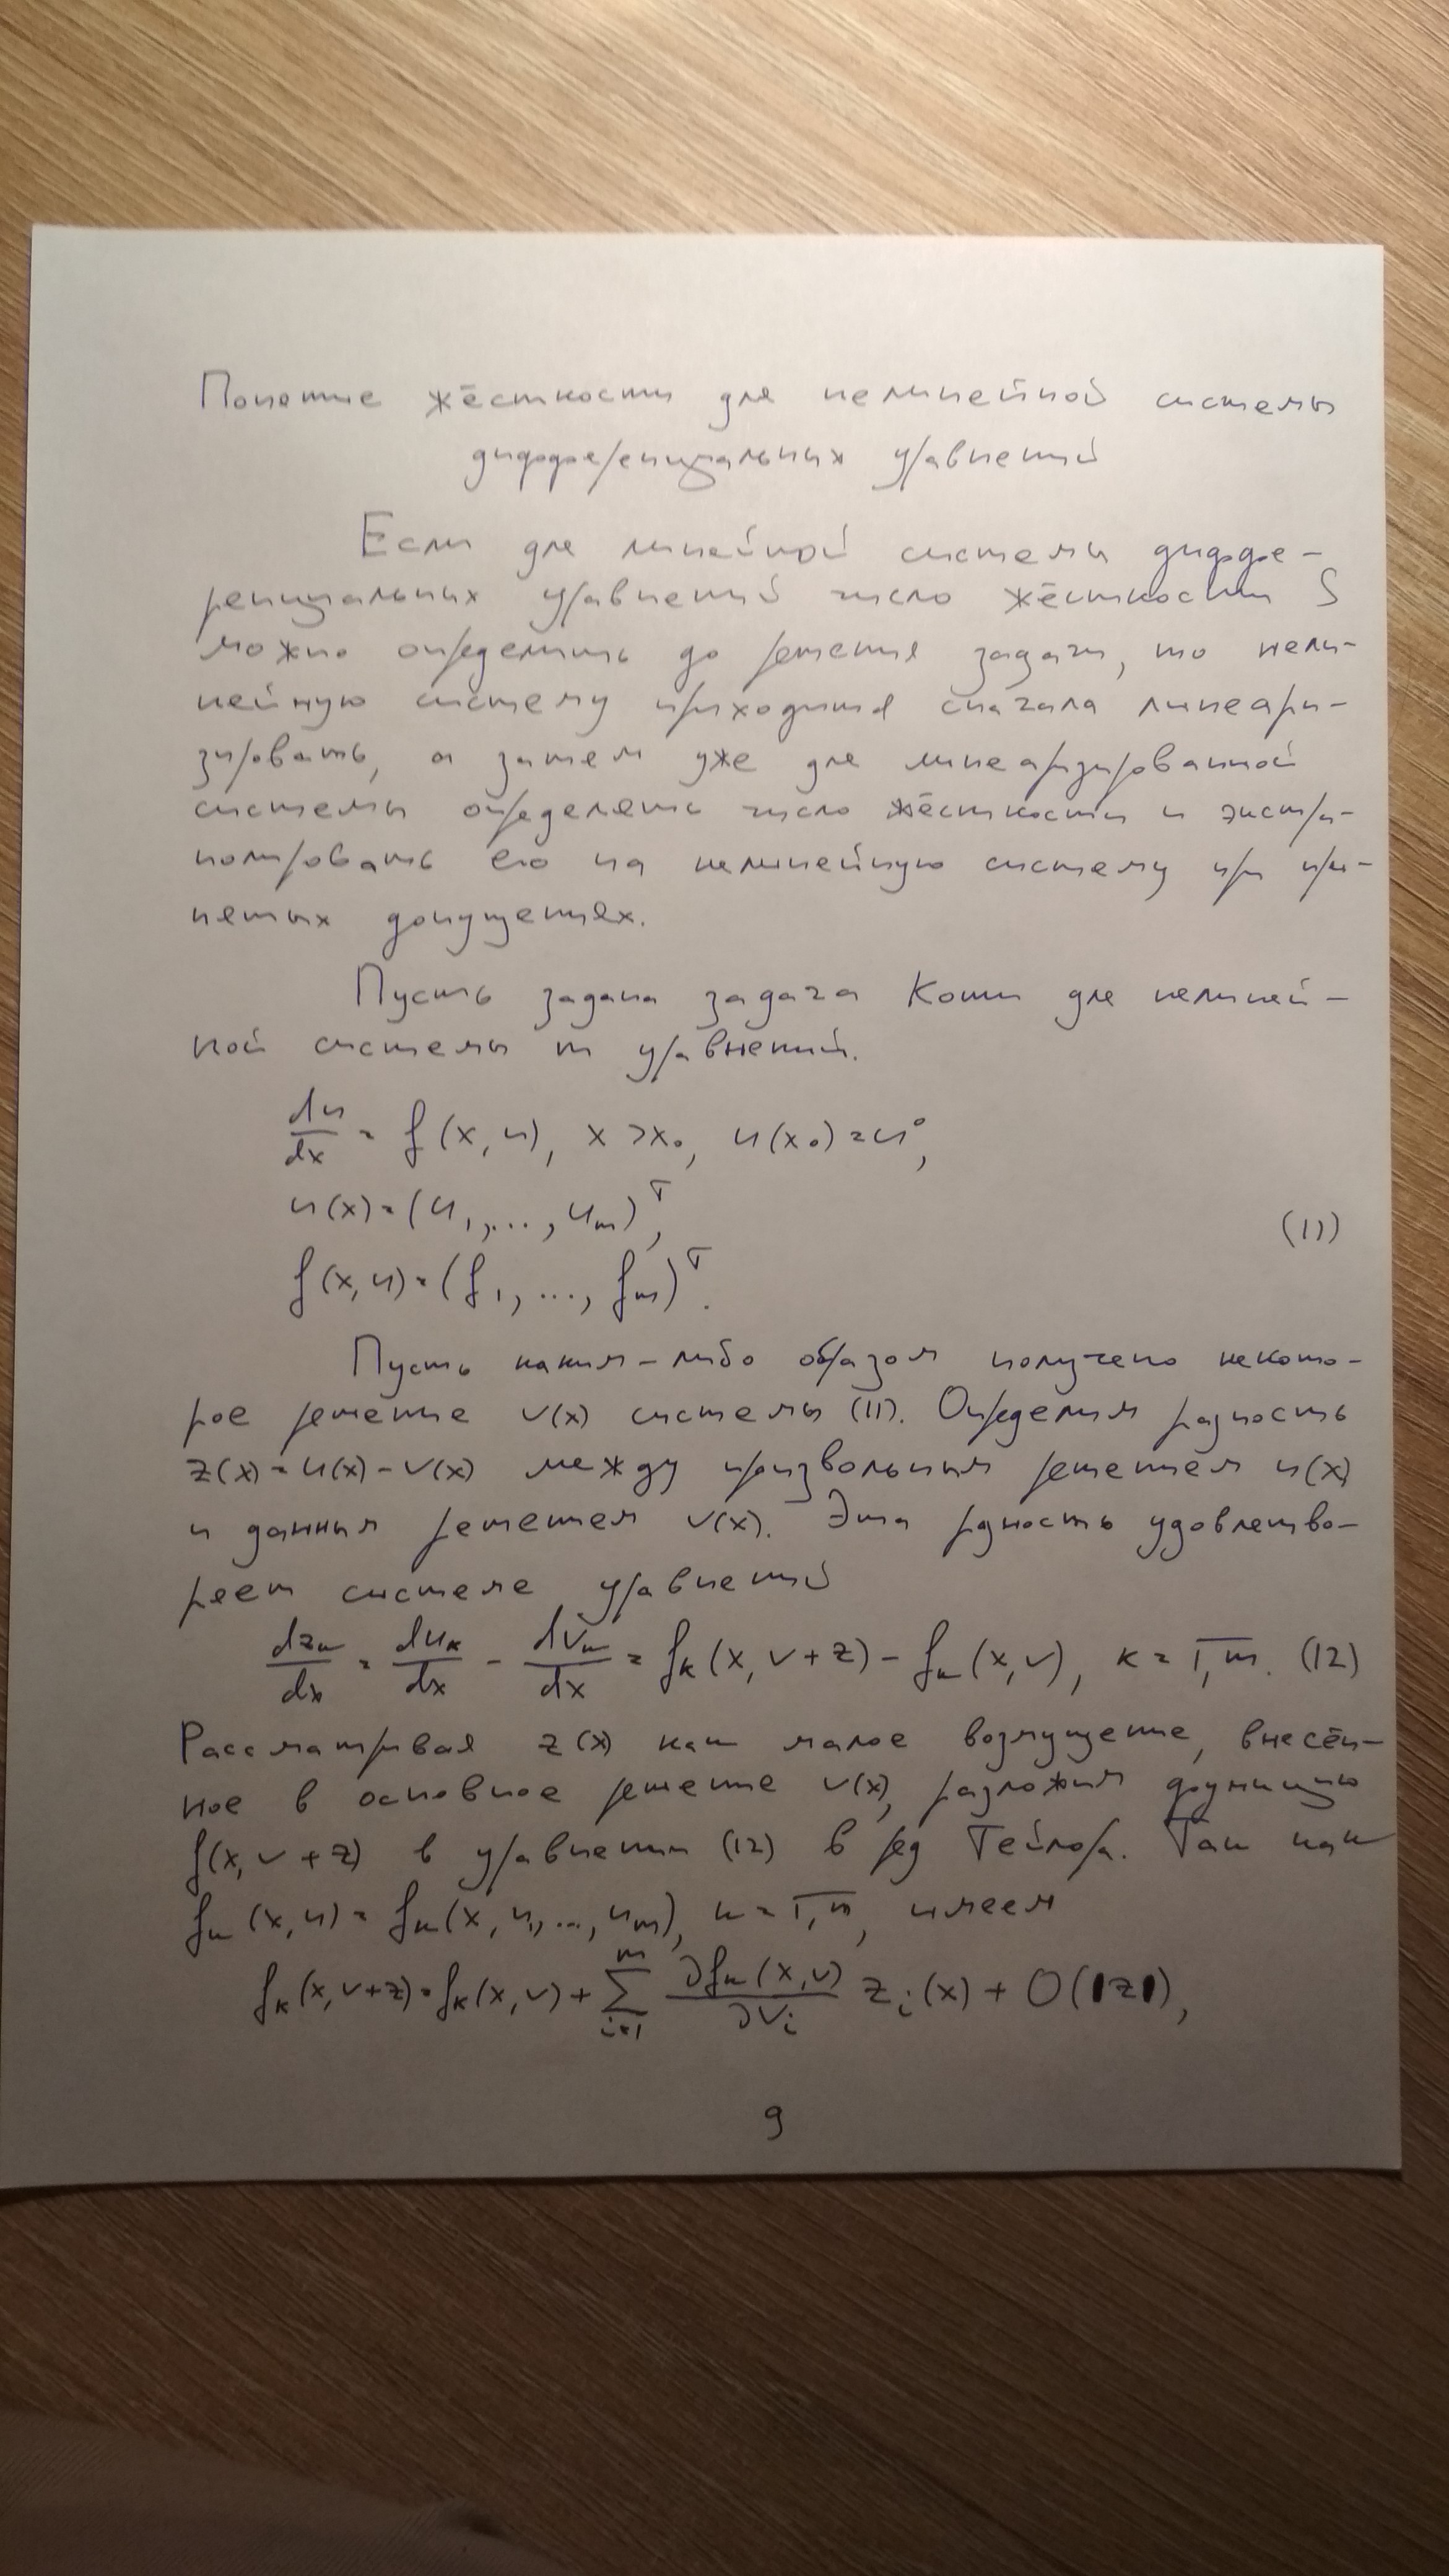 Понятие жёсткости для нелинейной системы
дифференциальных уравнений
Если для линейной системы диффе-
ренциальных уравнений число жёсткости S
можно определить до решения задачи, то нели-
нейную систему приходится сначала линеари-
зировать, а затем уже для линеаризированной
системы определять число жёсткости и экстра-
полировать его на нелинейную систему при при-
нятых допущениях.
Пусть задана задача Коши для нелиней-
ной системы m уравнений.
du/dx = f(x, u), x > x₀, u(x₀) = u⁰,
u(x) = (u₁, ..., uₘ)ᵀ,
(11)
f(x, u) = (f₁, ..., fₘ)ᵀ.
Пусть каким-либо образом получено некото-
рое решение v(x) системы (11). Определим разность
z(x) = u(x) - v(x) между произвольным решением u(x)
и данным решением v(x). Эта разность удовлетво-
ряет системе уравнений
dzₖ/dx = duₖ/dx - dvₖ/dx = fₖ(x, v+z) - fₖ(x, v), k = 1,m. (12)
Рассматривая z(x) как малое возмущение, внесён-
ное в основное решение v(x), разложим функцию
f(x, v+z) в уравнении (12) в ряд Тейлора. Так как
fₖ(x, u) = fₖ(x, u₁, ..., uₘ), k = 1,n, имеем
fₖ(x, v+z) = fₖ(x, v) + ∑ᵢ₌₁ᵐ ∂fₖ(x, v)/∂vᵢ zᵢ(x) + O(|z|),
9